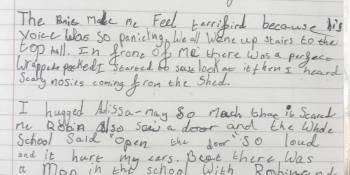 The Make me Feel terrifird because his
voice was so panicing. We all wene up stairs to the
top hall. In frone of me there was a perfect
I started to look at it then I heard
Scary nosies coming from the Shed.
I hugged Alissa-may So much it Scared
me Robin also saw a door and the Whole
School Said "open the door" so loud
and it hurt my ears. But there was
a Man in the school with